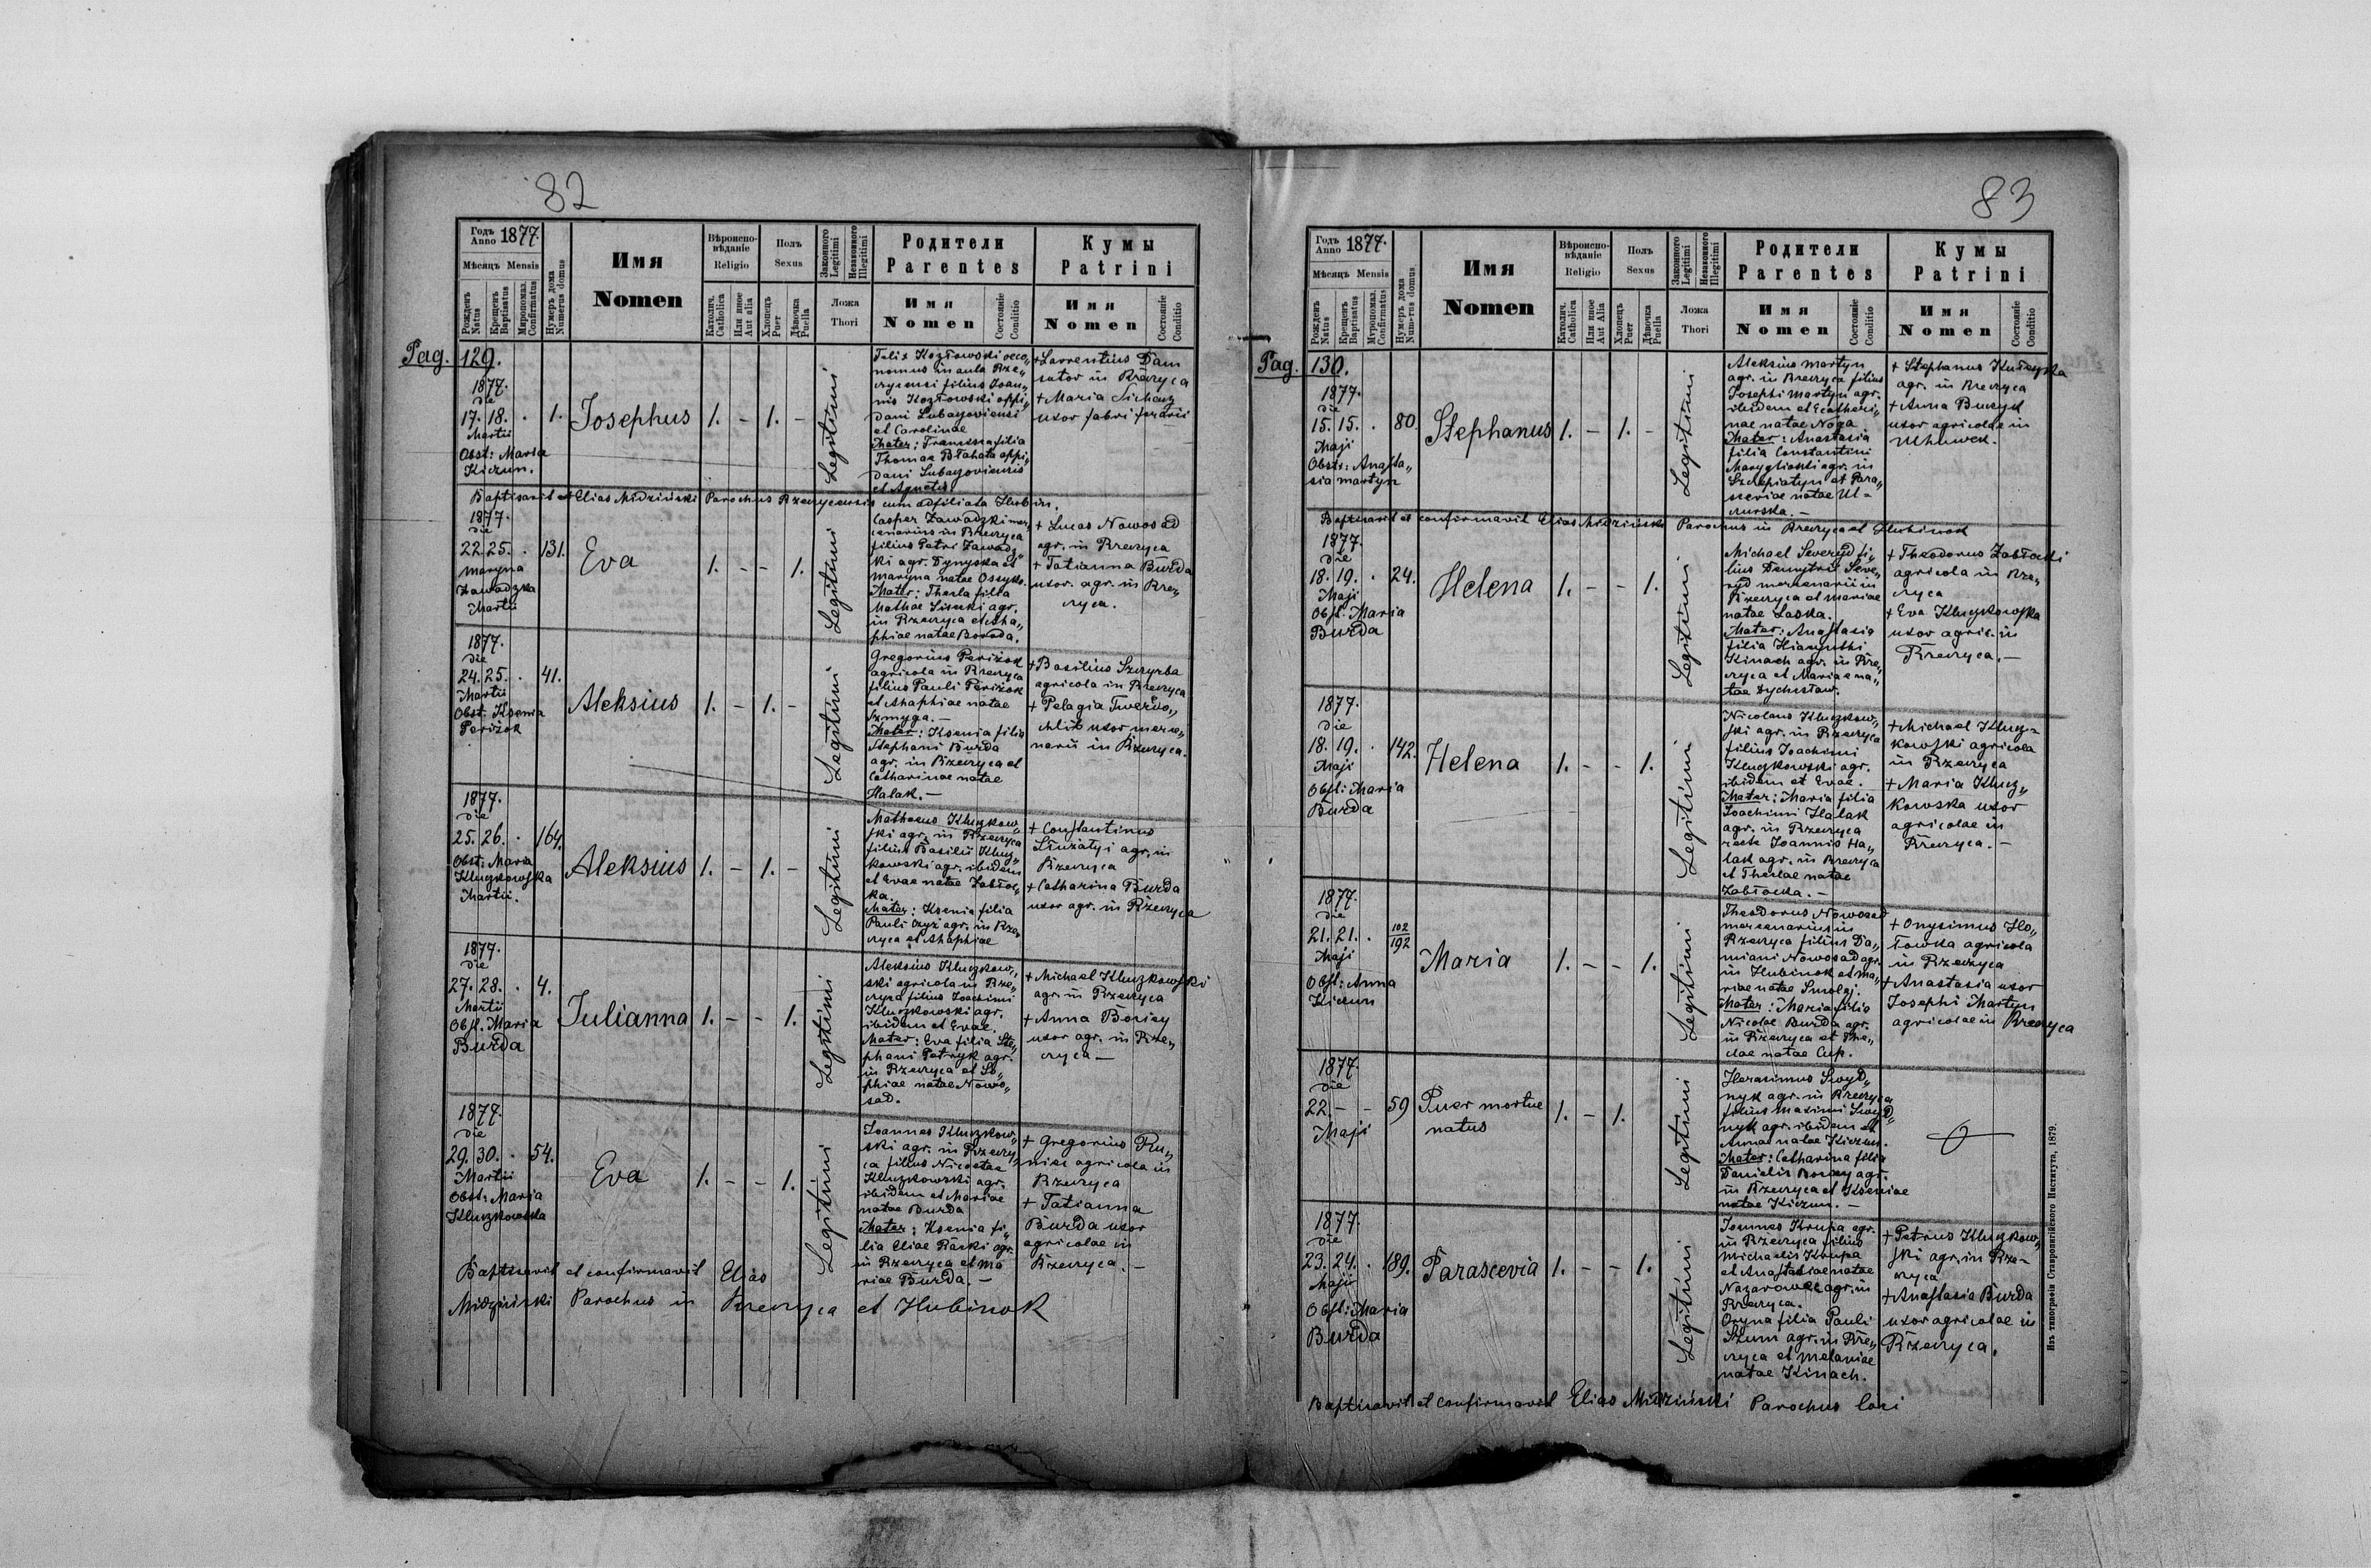 82
Годъ Anno 1877.
Мѣсяцъ Mensis
Рожденъ Natus
Крещенъ Baptisatus
Мѵропомаз. Confirmatus
Нумеръ дома Numerus domus
Имя
Nomen
Вѣроиспо-
вѣданіе
Religio
Католич. Catholica
Или иное Aut alia
Полъ
Sexus
Хлопецъ Puer
Дѣвочка Puella
Законного Legitimi
Незаконного Illegitimi
Ложа
Thori
Родители
Parentes
Имя
Nomen
Состояніе Conditio
Кумы
Patrini
Имя
Nomen
Состояніе Conditio
Pag. 129.
1877.
die
17. 18. . 1.
Martii
Obst: Maria
Kiczun.
Josephus
1. - 1. -
Legitimi
Felix Kozłowski oeco„
nomus in aula Rze„
czycensi filius Joan„
nis Kozłowski oppi„
dani Lubaczoviensi
et Carolinae
Mater: Francisca filia
Thomae Błahata oppi„
dani Lubaczoviensis
et Agnetis.
+ Laurentius Dam
sutor in Rzeczyca
+ Maria
uxor fabri ferarii
Baptisavit et Elias Midziński Parochus Rzeczycensis cum adfiliata Hubin.
1877.
die
22. 25. . 131.
Maryna
Zawadzka
Martii
Eva
1. - - 1.
Legitimi
Casper Zawadzki mer„
cenarius in Rzeczyca
filius Petri Zawadz„
ki agr. Dynyska et
Maryna natae
Mater: Thecla filia
Mathae agr.
in Rzeczyca et Aha„
phiae natae Boroda.
+ Lucas Nowosad
agr. in Rzeczyca
+ Tatianna Burda
uxor. agr. in Rze„
czyca.
1877.
die
24. 25. . 41.
Martii
Obst. Ksenia
Periżok
Aleksius
1. - 1. -
Legitimi
Gregorius Periżok
agricola in Rzeczyca
filius Pauli Periżok
et Ahaphiae natae
Szmyga. —
Mater: Ksenia filia
Stephani Burda
agr. in Rzeczyca et
Catharinae natae
Halak. —
+ Basilius Szczyrba
agricola in Rzeczyca
+ Pelagia Twerdo„
chlib uxor merce„
narii in Rzeczyca.
1877.
die
25. 26. . 164.
Obst: Maria
Kluczkowska
Martii.
Aleksius
1. - 1. -
Legitimi
Mathaeus Kluczkow„
ski agr. in Rzeczyca
filius Basilii Klucz„
kowski agr. ibidem
et Evae natae Zabłoc„
ka.
Mater: Ksenia filia
Pauli Czyż agr. in Rze„
czyca et Ahaphiae
+ Constantinus
agr. in
Rzeczyca
+ Catharina Burda
uxor agr. in Rzeczyca
1877.
die
27. 28. . 4.
Martii
Obst. Maria
Burda
Julianna
1. - - 1.
Legitimi
Aleksius Kluczkow„
ski agricola in Rze„
czyca filius Joachimi
Kluczkowski agr.
ibidem et Evae.
Mater: Eva filia Ste„
phani Petryk agr.
in Rzeczyca et So„
phiae natae Nowo„
sad.
+ Michael Kluczkowski
agr. in Rzeczyca
+ Anna Boriey
uxor agr. in Rze„
czyca —
1877.
die
29. 30. . 54.
Martii
Obst: Maria
Kluczkowska
Eva
1. - - 1.
Legitimi
Joannes Kluczkow„
ski agr. in Rzeczy„
ca filius Nicetae
Kluczkowski agr.
ibidem et Mariae
natae Burda
Mater: Ksenia fi„
lia Eliae Raski agr.
in Rzeczyca et Ma
riae Burda. —
+ Gregorius
agricola in
Rzeczyca
+ Tatianna
Burda uxor
agricolae in
Rzeczyca. —
Baptisavit et confirmavit Elias
Midziński Parochus in Rzeczyca et Hubinok
83
Годъ Anno 1877.
Мѣсяцъ Mensis
Рожденъ Natus
Крещенъ Baptisatus
Мѵропомаз. Confirmatus
Нумеръ дома Numerus domus
Имя
Nomen
Вѣроиспо-
вѣданіе
Religio
Католич. Catholica
Или иное Aut Alia
Полъ
Sexus
Хлопецъ Puer
Дѣвочка Puella
Законного Legitimi
Незаконного Illegitimi
Ложа
Thori
Родители
Parentes
Имя
Nomen
Состояніе Conditio
Кумы
Patrini
Имя
Nomen
Состояніе Conditio
Pag. 130.
1877.
die
15. 15. . 80.
Maji
Obst: Anasta„
sia Martyn
Stephanus
1. - 1. -
Legitimi
Aleksius Martyn
agr. in Rzeczyca filius
Josephi Martyn agr.
ibidem et Ecatheri„
nae natae Noga
Mater: Anastasia
filia Constantini
agr. in
Szczepiatyn et Para„
sceviae natae
+ Stephanus
agr. in Rzeczyca
+ Anna
uxor agricolae in
Uhnwek.
Baptisavit et confirmavit Elias Midziński Parochus in Rzeczyca et Hubinok
1877.
die
18. 19. . 24.
Maji
Obst. Maria
Burda
Helena
1. - - 1.
Legitimi
Michael Seweryd fi„
lius Demytrii Sewe„
ryd mercenarii in
Rzeczyca et Mariae
natae Laska.
Mater: Anastasia
filia
Kinach agr. in Rze„
czyca et Mariae na„
tae Dycheslaw.
+ Theodorus Zabłocki
agricola in Rze„
czyca
+ Eva Kluczkowska
uxor agric. in
Rzeczyca. —
1877.
die
18. 19. . 142.
Maji
Obst: Maria
Burda
Helena
1. - - 1.
Legitimi
Nicolaus Kluczkow„
ski agr. in Rzeczyca
filius Joachimi
Kluczkowski agr.
ibidem et Evae.
Mater: Maria filia
Joachimi Halak
agr. in Rzeczyca
recte Joannis Ha„
lak agr. in Rzeczyca
et Theclae natae
Zabłocka. —
+ Michael Klucz„
kowski agricola
in Rzeczyca
+ Maria Klucz„
kowska uxor
agricolae in
Rzeczyca. —
1877.
die
21. 21. . 102/192
Maji
Obst: Anna
Kiczun
Maria
1. - - 1.
Legitimi
Theodorus Nowosad
mercenarius in
Rzeczyca filius Da„
miani Nowosad agr.
in Hubinok et Ma„
riae natae Smolej.
Mater: Maria filia
Nicolae Burda agr.
in Rzeczyca et The„
clae natae Cup.
+ Onysimus Ho„
łowka agricola
in Rzeczyca
+ Anastasia uxor
Josephi Martyn
agricolae in Rzeczyca
1877.
die
22. - - 59
Maji
Puer mortue
natus
1. - 1.
Legitimi
Herasimus Swyd„
nyk agr. in Rzeczyca
filius Maximi Swyd„
nyk agr. ibidem et
Annae natae Kiczun.
Mater: Catharina filia
Danielis agr.
in Rzeczyca et Kseniae
natae Kiczun. —
1877.
die
23. 24. . 189.
Maji
Obst: Maria
Burda
Parascevia
1. - - 1.
Legitimi
Joannes Krupa agr.
in Rzeczyca filius
Michaelis Krupa
et Anastasiae natae
agr. in
Rzeczyca.
Oryna filia Pauli
Szum agr. in Rze„
czyca et Melaniae
natae Kinach.
+ Petrus Kluczkow„
ski agr. in Rze„
czyca
+ Anastasia Burda
uxor agricolae in
Rzeczyca.
Baptisavit et confirmavit Elias Midziński Parochus loci
Изъ типографіи Ставропигійского Института, 1879.